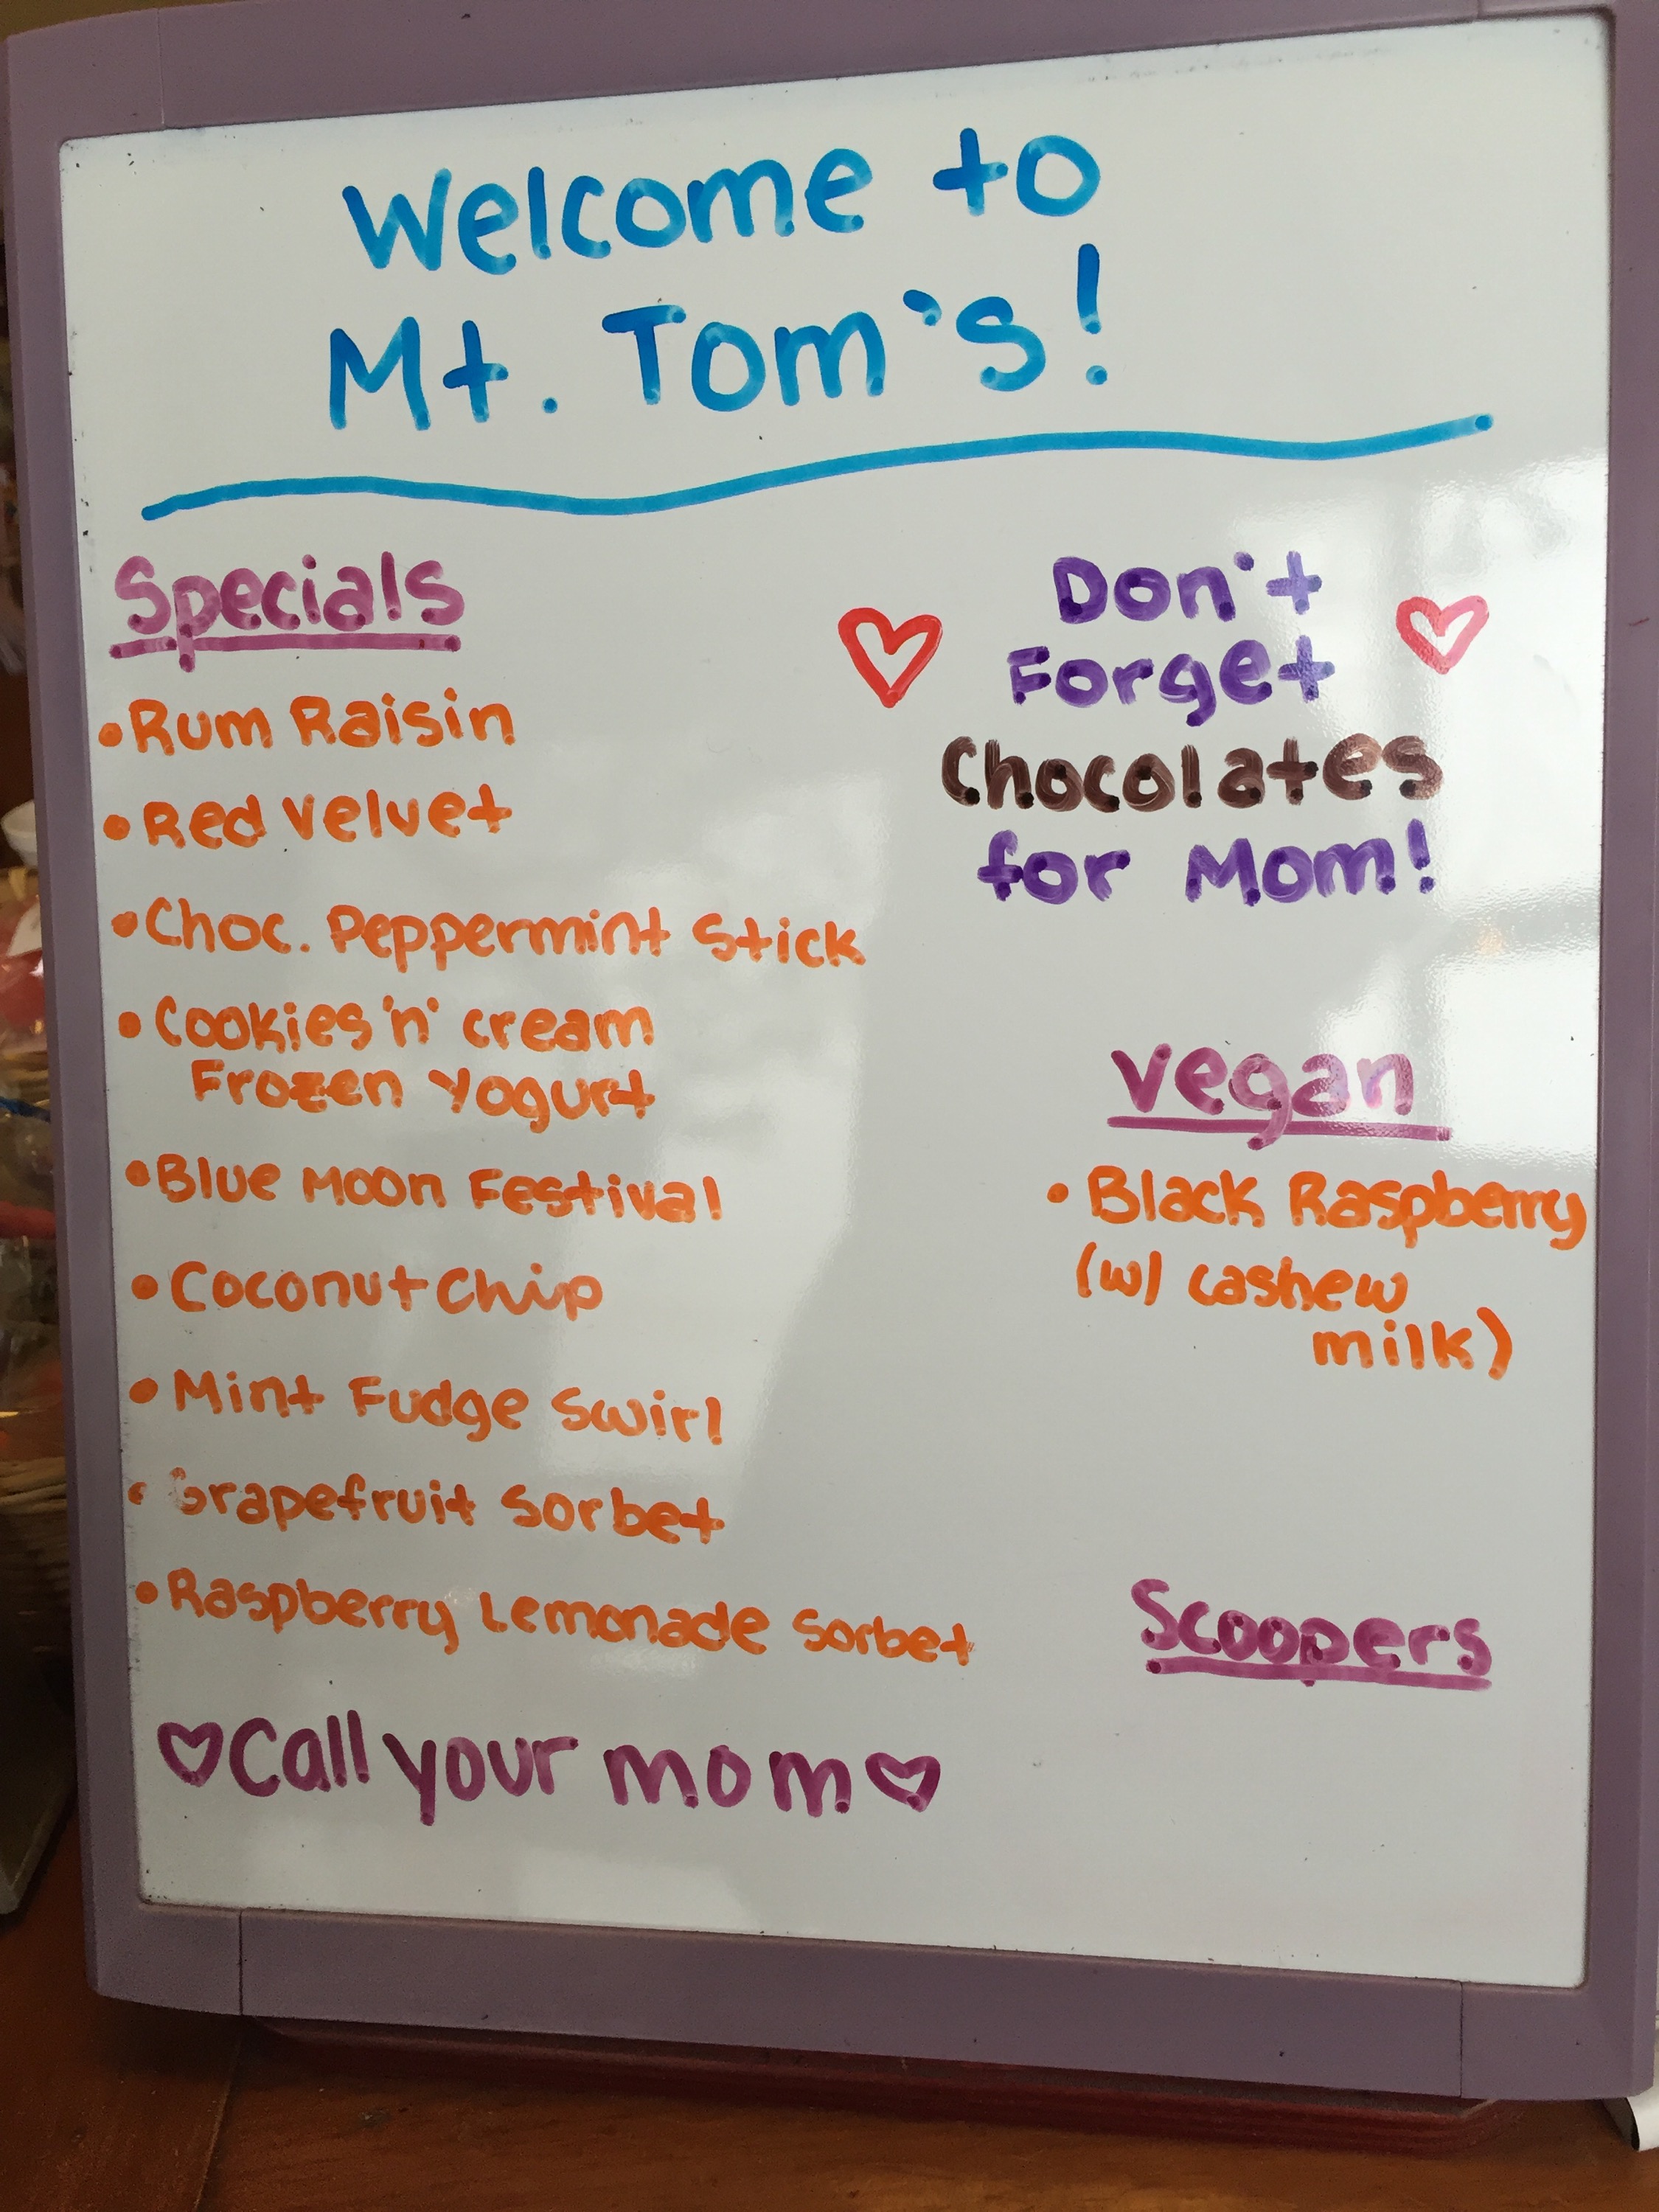 Welcome to
Mt. Tom's!
Specials
• Rum Raisin
• Red Velvet
• Choc. Peppermint Stick
• Cookies 'n' cream
Frozen Yogurt
• Blue Moon Festival
• Coconut Chip
• Mint Fudge Swirl
• Grapefruit Sorbet
• Raspberry Lemonade Sorbet
♡ Call your mom ♡
Don't
Forget
Chocolates
for Mom!
Vegan
• Black Raspberry
(w/ cashew
milk)
Scoopers